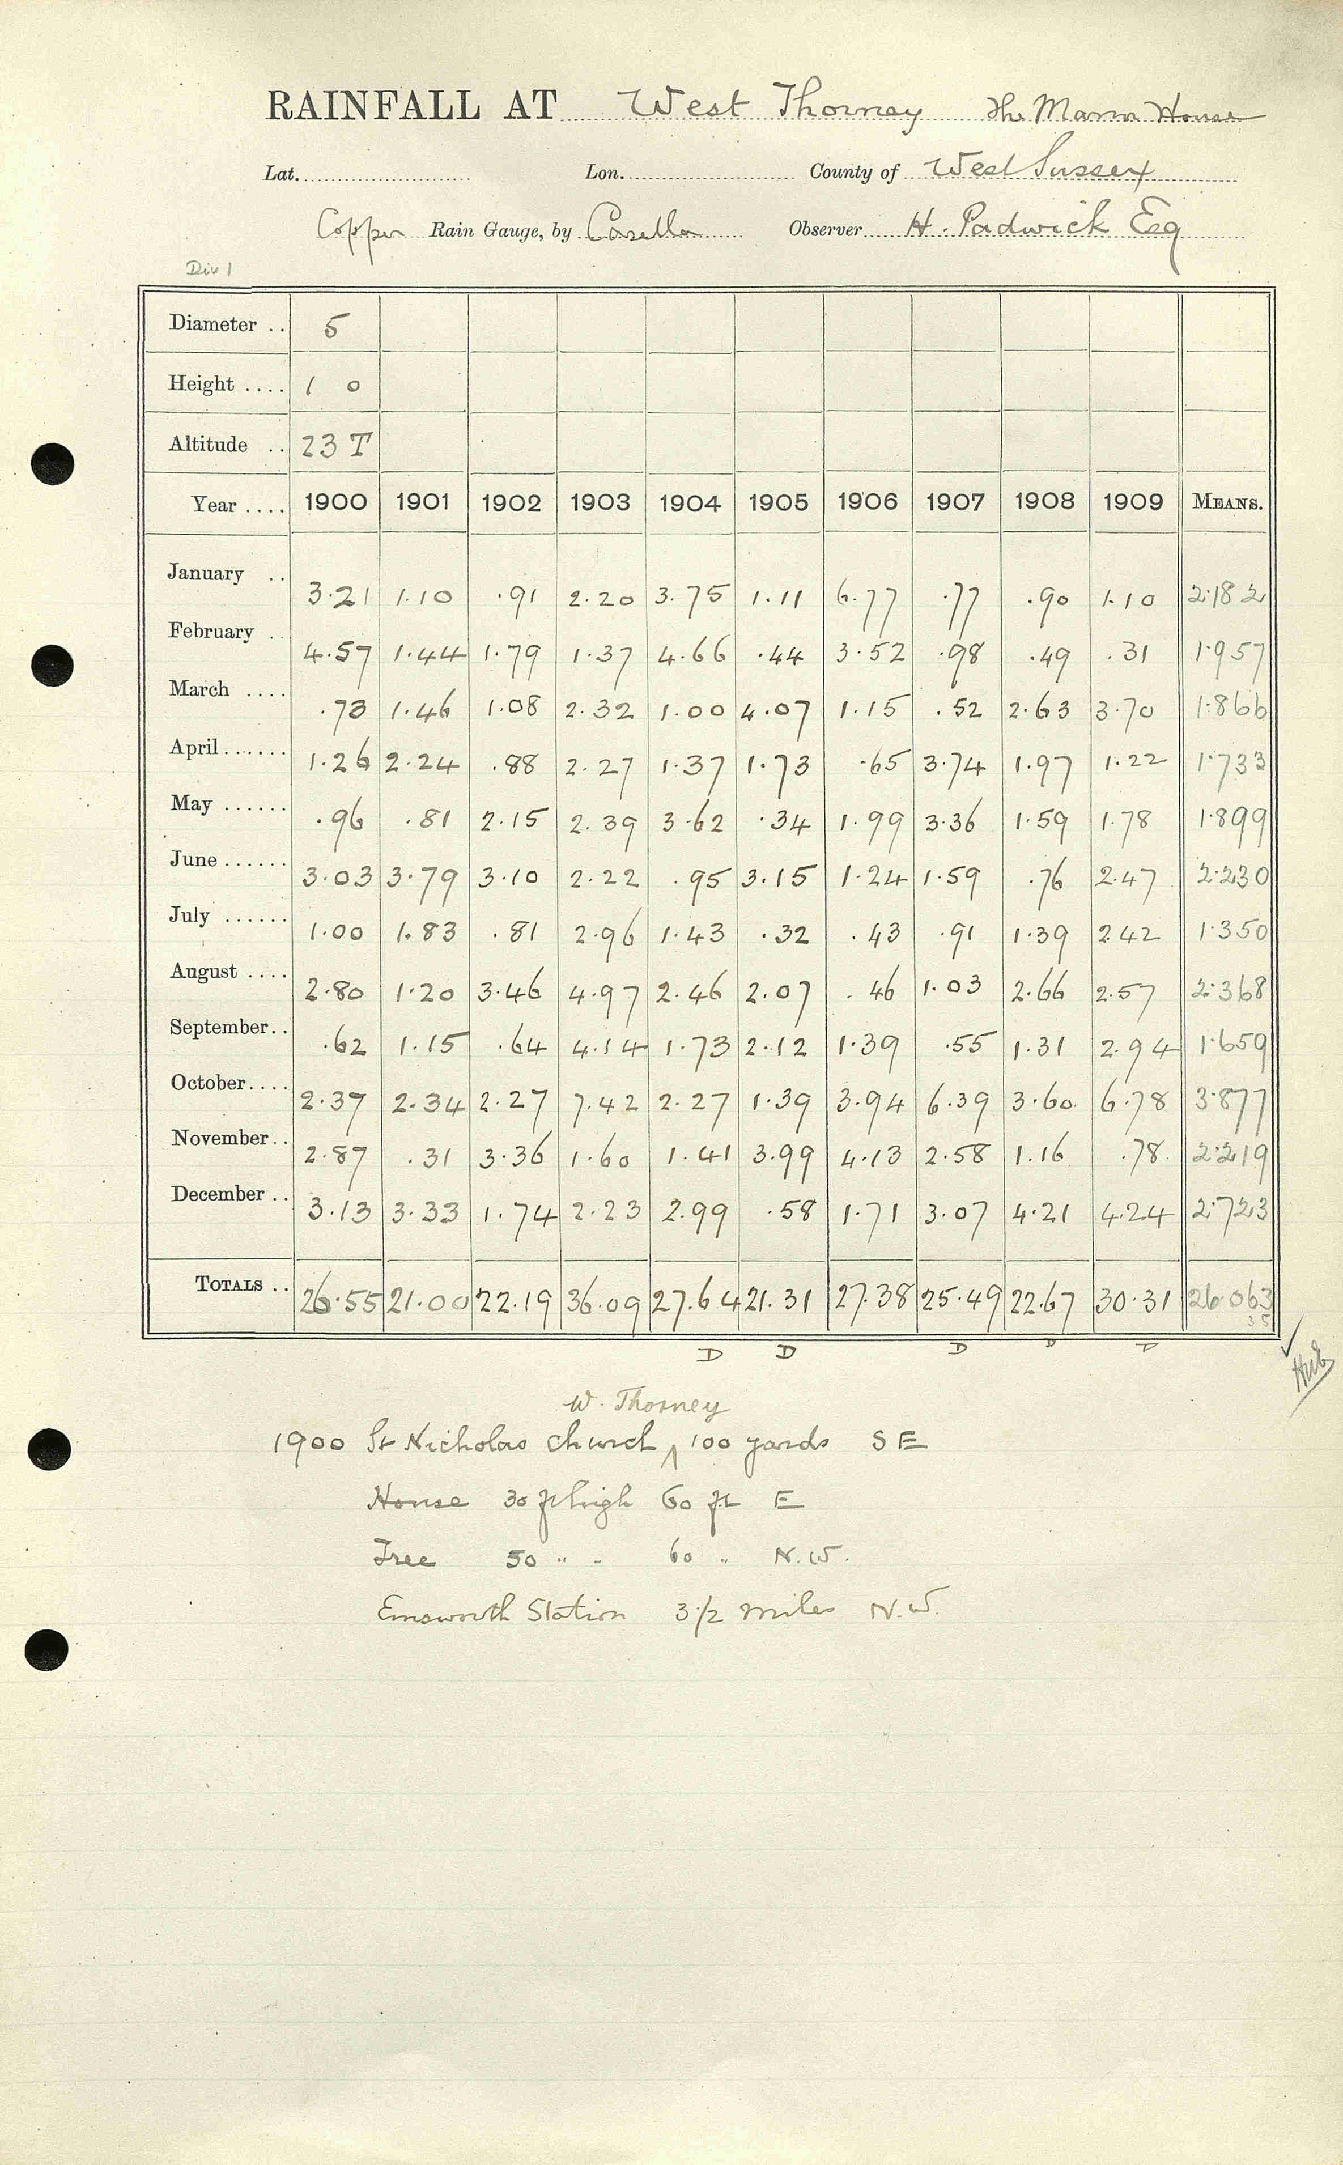 RAINFALL AT West Thorney The Manor House
Lat. Lon. County of West Sussex
Copper Rain Gauge, by Casella Observer H. Padwick Esq
Div 1
Diameter .. 5
Height .... 1 0
Altitude .. 23 T
Year .... 1900 1901 1902 1903 1904 1905 1906 1907 1908 1909 MEANS.
January .. 3.21 1.10 .91 2.20 3.75 1.11 6.77 .77 .90 1.10 2.182
February .. 4.57 1.44 1.79 1.37 4.66 .44 3.52 .98 .49 .31 1.957
March .... .73 1.46 1.08 2.32 1.00 4.07 1.15 .52 2.63 3.70 1.866
April ...... 1.26 2.24 .88 2.27 1.37 1.73 .65 3.74 1.97 1.22 1.733
May ...... .96 .81 2.15 2.39 3.62 .34 1.99 3.36 1.59 1.78 1.899
June ...... 3.03 3.79 3.10 2.22 .95 3.15 1.24 1.59 .76 2.47 2.230
July ...... 1.00 1.83 .81 2.96 1.43 .32 .43 .91 1.39 2.42 1.350
August .... 2.80 1.20 3.46 4.97 2.46 2.07 .46 1.03 2.66 2.57 2.368
September .. .62 1.15 .64 4.14 1.73 2.12 1.39 .55 1.31 2.94 1.659
October .... 2.37 2.34 2.27 7.42 2.27 1.39 3.94 6.39 3.60 6.78 3.877
November .. 2.87 .31 3.36 1.60 1.41 3.99 4.13 2.58 1.16 .78 2.219
December .. 3.13 3.33 1.74 2.23 2.99 .58 1.71 3.07 4.21 4.24 2.723
TOTALS .. 26.55 21.00 22.19 36.09 27.64 21.31 27.38 25.49 22.67 30.31 26.063
35
D D D D D
W. Thorney
1900 St Nicholas church ^ 100 yards SE
House 30 ft high 60 ft E
Tree 50 " " 60 " N.W.
Emsworth Station 3 1/2 miles N.W.